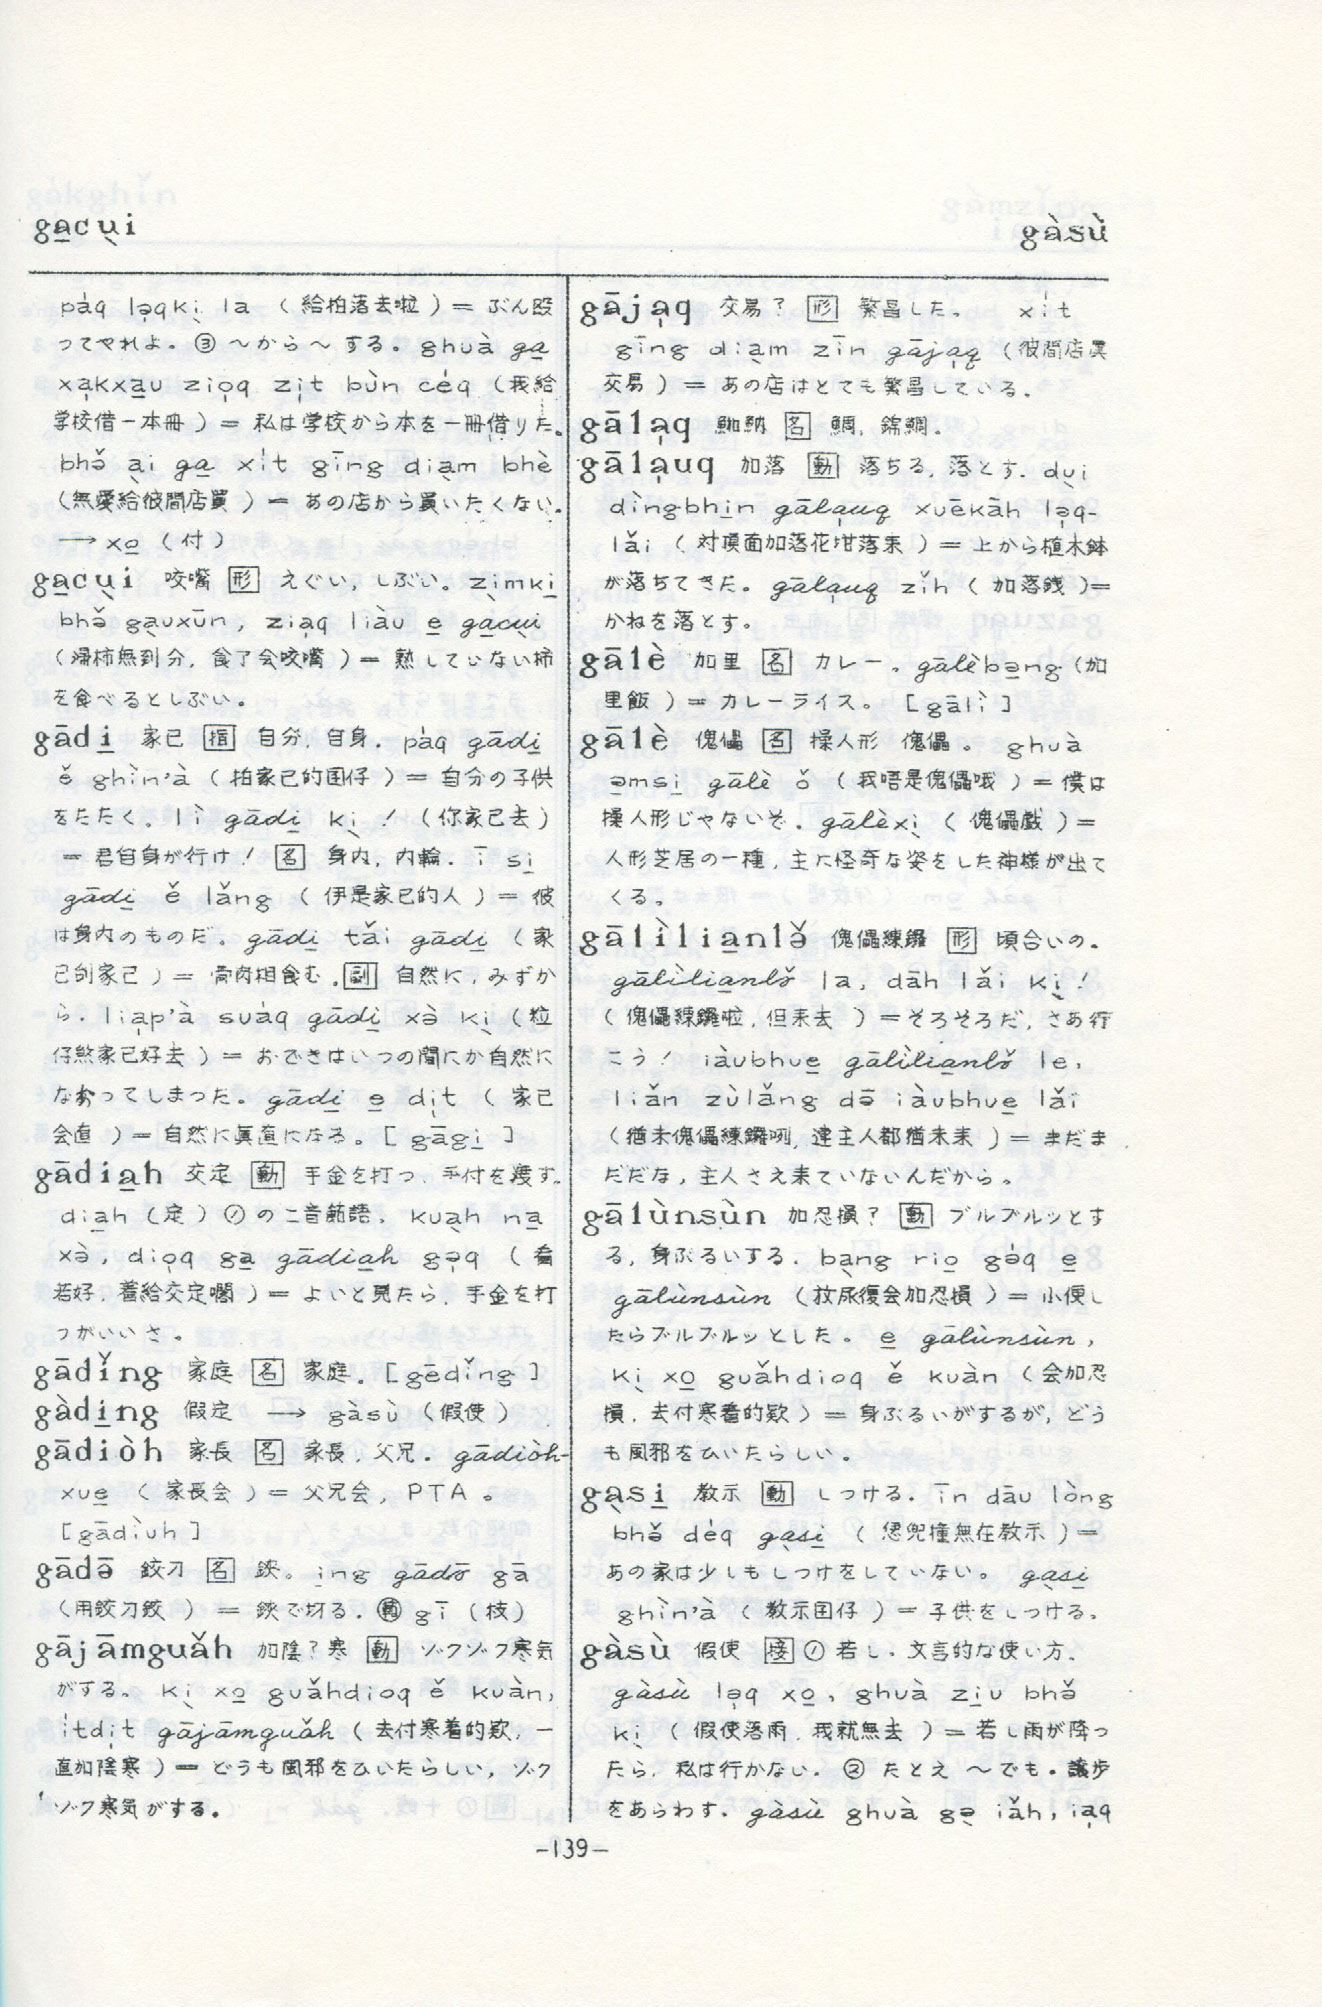 ga̱cu̩i
gàsù
páq lə̩qki̩ la (給拍落去啦)＝ぶん殴
ってやれよ。③〜から〜する。ghuà ga̱
xa̩kxa̱u zio̩q zi̩t bùn céq (我給
学校借一本冊)＝私は学校から本を一冊借りた。
bhə̌ a̩i ga̱ xít gīng dia̩m bhè
(無愛給彼間店買)＝あの店から買いたくない。
→xo̱ (付)
ga̱cu̩i 咬嘴 [形] えぐい, しぶい。zi̩mki̱
bhə̌ ga̩uxūn, zia̩q liàu e̱ ga̱cu̩i
(浸柿無到分, 食了会咬嘴)＝熟していない柿
を食べるとしぶい。
gādi̱ 家己 [指] 自分, 自身. páq gādi̱
ě ghìn'à (拍家己的囝仔)＝自分の子供
をたたく。lì gādi̱ ki̩! (你家己去)
＝君自身が行け! [名] 身内, 内輪. ī si̱
gādi̱ ě lǎng (伊是家己的人)＝彼
は身内のものだ。gādi̱ tǎi gādi̱ (家
己刣家己)＝骨肉相食む. [副] 自然に, みずか
ら. lia̩p'à suáq gādi̱ xə̀ ki̩ (粒
仔煞家己好去)＝おできはいつの間にか自然に
なおってしまった。gādi̱ e̱ di̩t (家己
会直)＝自然に真直になる。[gāgi̱]
gādia̱h 交定 [動] 手金を打つ, 手付を渡す。
dia̱h (定)①の二音節語. kua̩h na̱
xə̀, dio̩q ga̱ gādia̱h gə̩q (看
若好, 着給交定囥)＝よいと見たら, 手金を打
つがいいさ。
gādǐng 家庭 [名] 家庭。[gēdǐng]
gàdi̱ng 假定 → gàsù (假使)
gādiòh 家長 [名] 家長, 父兄. gādiòh-
xue̱ (家長会)＝父兄会, PTA。
[gādiùh]
gādə̄ 鉸刀 [名] 鋏。i̱ng gādə̄ gā
(用鉸刀鉸)＝鋏で切る. gī (枝)
gājāmguǎh 加陰?寒 [動] ゾクゾク寒気
がする。ki̩ xo̱ guǎhdioq ě kuàn,
ítdi̩t gājāmguǎh (去付寒着的款, 一
直加陰寒)＝どうも風邪をひいたらしい, ゾク
ゾク寒気がする。
-139-
gāja̩q 交易? [形] 繁昌した。 xít
gīng dia̩m zīn gāja̩q (彼間店真
交易)＝あの店はとても繁昌している.
gāla̩q [名] 鯛, 錦鯛.
gāla̩uq 加落 [動] 落ちる, 落とす. du̩i
dìngbhi̱n gāla̩uq xuēkāh lə̩q-
lǎi (対頂面加落花坩落来)＝上から植木鉢
が落ちてきた。gāla̩uq zǐh (加落銭)＝
かねを落とす。
gālè 加里 [名] カレー。gālèbə̱ng (加
里飯)＝カレーライス。[gālì]
gālè 傀儡 [名] 操人形 傀儡。 ghuà
ə̱msi̱ gālè ǒ (我唔是傀儡哦)＝僕は
操人形じゃないぞ. gālèxi̩ (傀儡戯)＝
人形芝居の一種, 主に怪奇な姿をした神様が出て
くる。
gālìlia̱nlə̌ 傀儡練鑼 [形] 頃合いの。
gālìlia̱nlə̌ la, dāh lǎi ki̩!
(傀儡練鑼啦, 但来去)＝そろそろだ, さあ行
こう! iàubhue̱ gālìlia̱nlə̌ le,
liǎn zùlǎng dō iàubhue̱ lǎi
(猶未傀儡練鑼咧, 連主人都猶未来)＝まだま
だだな, 主人さえ来ていないんだから。
gālùnsùn 加忍損? [動] ブルブルッとす
る, 身ぶるいする. ba̩ng rio̱ gə́q e̱
gālùnsùn (放尿復会加忍損)＝小便し
たらブルブルッとした。e̱ gālùnsùn,
ki̩ xo̱ guǎhdioq ě kuàn (会加忍
損, 去付寒着的款)＝身ぶるいがするが, どう
も風邪をひいたらしい。
ga̩si̱ 教示 [動] しつける. īn dāu lòng
bhə̌ déq ga̩si̱ (𪜶兜攏無在教示)＝
あの家は少しもしつけをしていない。 ga̩si̱
ghìn'à (教示囝仔)＝子供をしつける.
gàsù 假使 [接] ①若し. 文言的な使い方.
gàsù lə̩q xo̱, ghuà zi̱u bhə̌
ki̩ (假使落雨, 我就無去)＝若し雨が降っ
たら, 私は行かない. ②たとえ〜でも. 譲歩
をあらわす. gàsù ghuà gə̩ iǎh, ia̩q